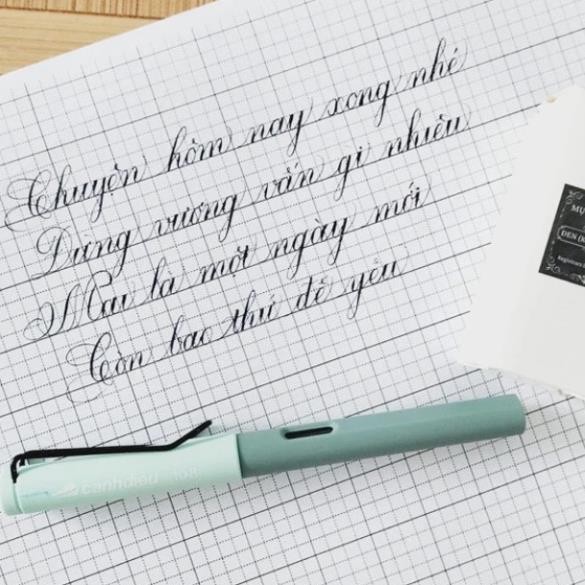 Chuyện hôm nay xong nhé
Đừng vương vấn gì nhiều
Mai là một ngày mới
Còn bao thứ để yêu
MỰ
ĐEN
cánhdiều